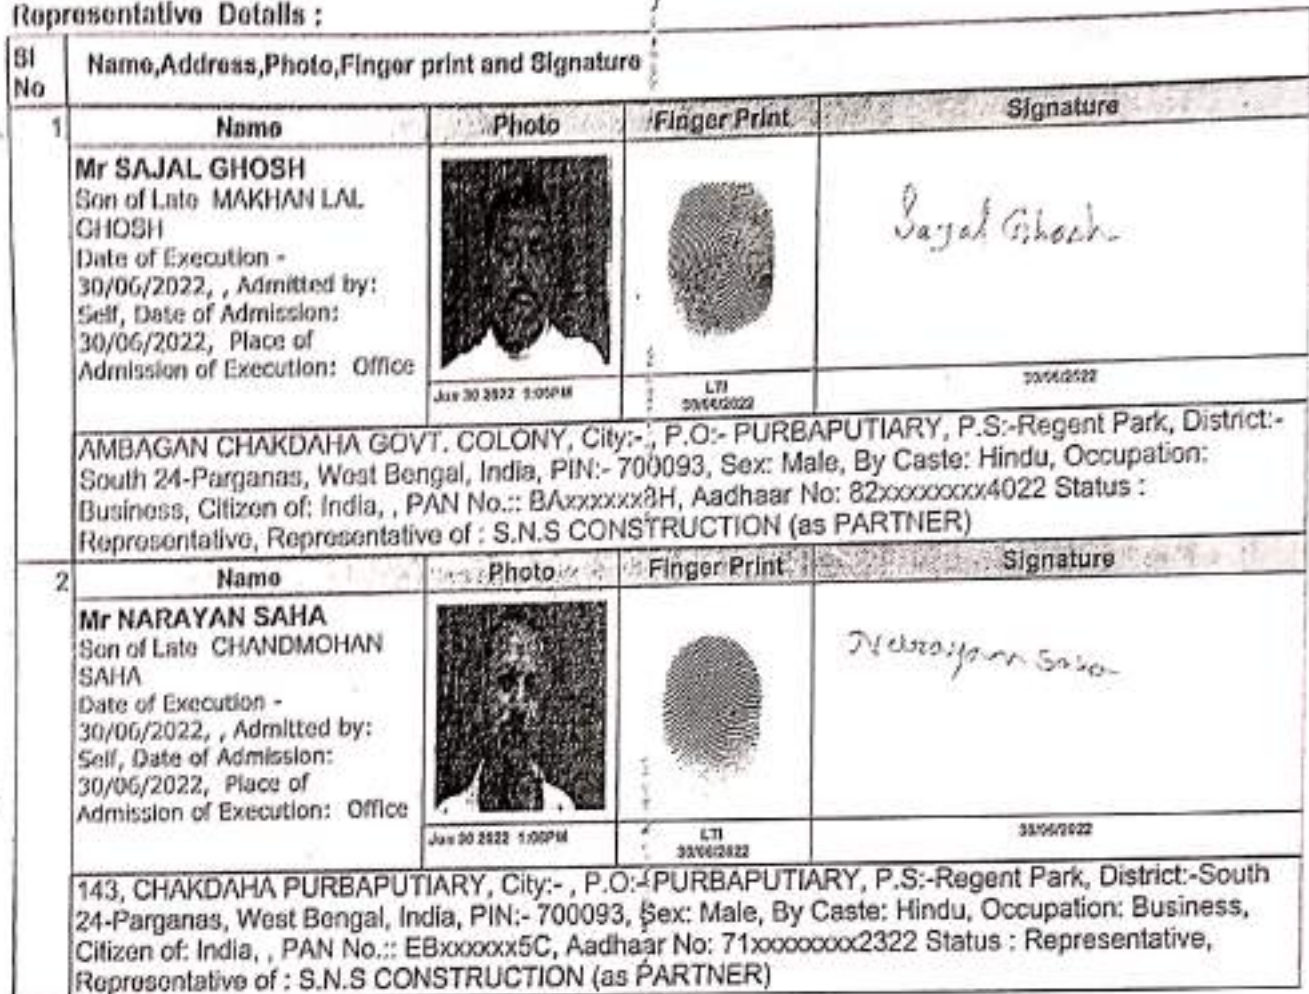 Representative Details :
Sl No
Name,Address,Photo,Finger print and Signature
1
Name
Photo
Finger Print
Signature
Mr SAJAL GHOSH
Son of Late MAKHAN LAL
GHOSH
Date of Execution -
30/06/2022, , Admitted by:
Self, Date of Admission:
30/06/2022, Place of
Admission of Execution: Office
Sajal Ghosh
Jun 30 2022 1:05PM
LTI
30/06/2022
30/06/2022
AMBAGAN CHAKDAHA GOVT. COLONY, City:- , P.O:- PURBAPUTIARY, P.S:-Regent Park, District:-
South 24-Parganas, West Bengal, India, PIN:- 700093, Sex: Male, By Caste: Hindu, Occupation:
Business, Citizen of: India, , PAN No.:: BAxxxxxx8H, Aadhaar No: 82xxxxxxxx4022 Status :
Representative, Representative of : S.N.S CONSTRUCTION (as PARTNER)
2
Name
Photo
Finger Print
Signature
Mr NARAYAN SAHA
Son of Late CHANDMOHAN
SAHA
Date of Execution -
30/06/2022, , Admitted by:
Self, Date of Admission:
30/06/2022, Place of
Admission of Execution: Office
Narayan Saha
Jun 30 2022 1:06PM
LTI
30/06/2022
30/06/2022
143, CHAKDAHA PURBAPUTIARY, City:- , P.O:- PURBAPUTIARY, P.S:-Regent Park, District:-South
24-Parganas, West Bengal, India, PIN:- 700093, Sex: Male, By Caste: Hindu, Occupation: Business,
Citizen of: India, , PAN No.:: EBxxxxxx5C, Aadhaar No: 71xxxxxxxx2322 Status : Representative,
Representative of : S.N.S CONSTRUCTION (as PARTNER)